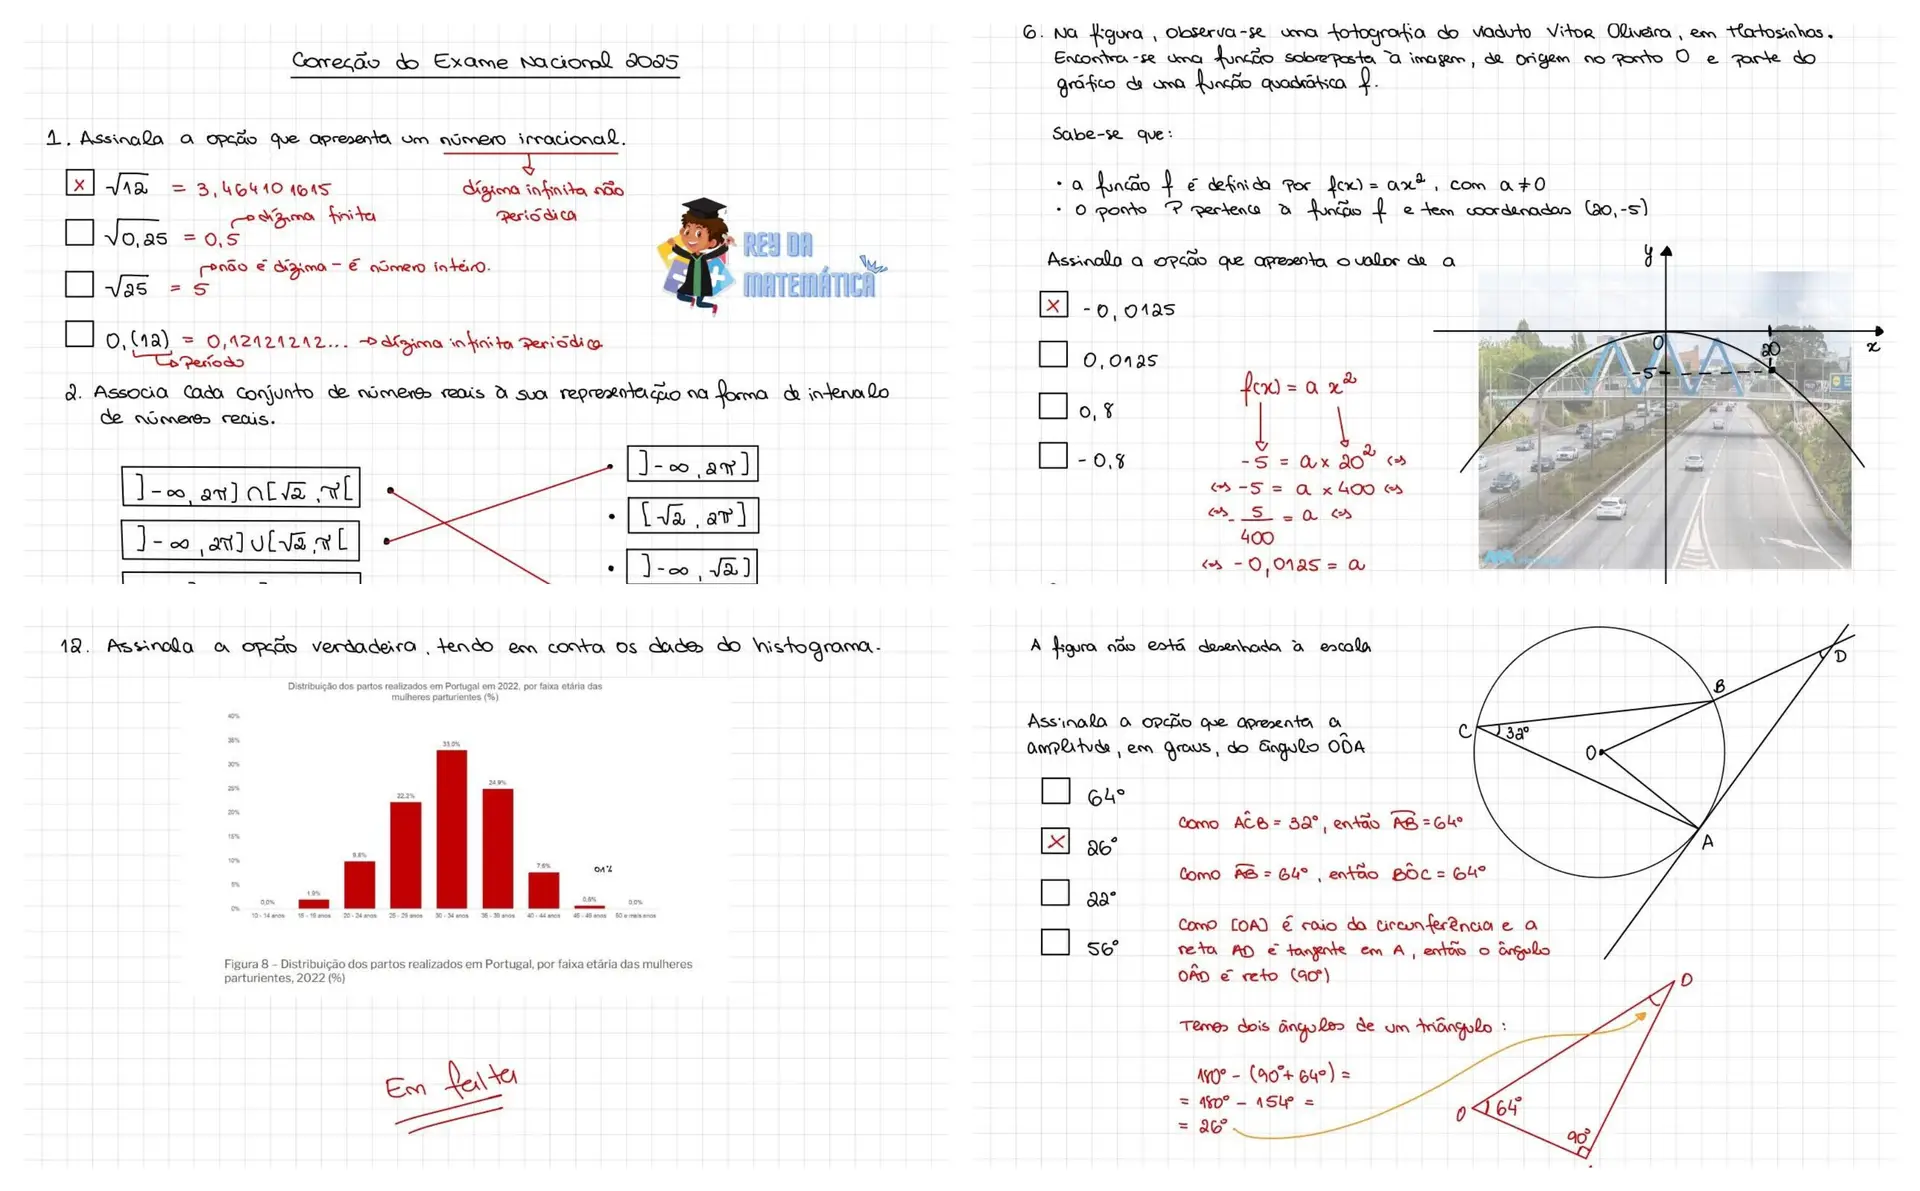 Correção do Exame Nacional 2025
1. Assinala a opção que apresenta um número irracional.
x √12 = 3,464101615
dízima infinita não
periódica
dízima finita
√0,25 = 0,5
não é dízima - é número inteiro.
√25 = 5
0,(12) = 0,12121212... → dízima infinita periódica
Período
REY DA
MATEMÁTICA
2. Associa cada conjunto de números reais à sua representação na forma de intervalo
de números reais.
]-∞, 2π] ∩ [√2, π[
]-∞, 2π] ∪ [√2, π[
]-∞, 2π]
[√2, 2π]
]-∞, √2]
6. Na figura, observa-se uma fotografia do viaduto Vitor Oliveira, em Matosinhos.
Encontra-se uma função sobreposta à imagem, de origem no ponto O e parte do
gráfico de uma função quadrática f.
Sabe-se que:
· a função f é definida por f(x) = ax², com a ≠ 0
· o ponto P pertence à função f e tem coordenadas (20,-5)
Assinala a opção que apresenta o valor de a
x -0,0125
0,0125
0,8
-0,8
f(x) = a x²
-5 = a x 20² <=>
<=> -5 = a x 400 <=>
<=> -5/400 = a <=>
<=> -0,0125 = a
y
O
20
x
-5
12. Assinala a opção verdadeira, tendo em conta os dados do histograma.
Distribuição dos partos realizados em Portugal em 2022, por faixa etária das
mulheres parturientes (%)
40%
35%
30%
25%
20%
15%
10%
5%
0%
0,0%
1,9%
9,8%
22,2%
33,0%
24,9%
7,6%
0,6%
0,0%
0,1%
10 - 14 anos
15 - 19 anos
20 - 24 anos
25 - 29 anos
30 - 34 anos
35 - 39 anos
40 - 44 anos
45 - 49 anos
50 e mais anos
Figura 8 – Distribuição dos partos realizados em Portugal, por faixa etária das mulheres
parturientes, 2022 (%)
Em falta
A figura não está desenhada à escala
Assinala a opção que apresenta a
amplitude, em graus, do ângulo OD̂A
64°
x 26°
22°
56°
Como AĈB = 32°, então AB = 64°
Como AB = 64°, então BÔC = 64°
Como [OA] é raio da circunferência e a
reta AD é tangente em A, então o ângulo
OÂD é reto (90°)
Temos dois ângulos de um triângulo:
180° - (90° + 64°) =
= 180° - 154° =
= 26°
B
D
C
32°
O
A
D
O
64°
90°